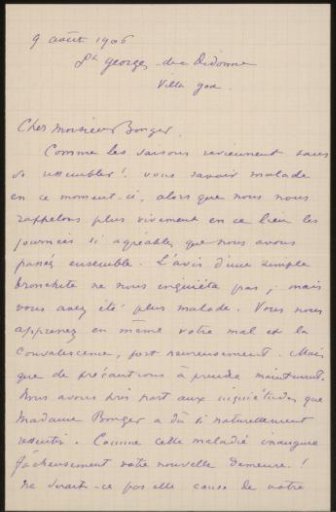 9 août 1906
St georges de Didonne
Villa Goa
Cher Monsieur Bonger.
Comme les saisons reviennent sans
se ressembler! vous savoir malade
en ce moment-ci, alors que nous nous
rappelons plus vivement en ce lieu les
journées si agréables que nous avons
passé ensemble. L'avis d'une simple
bronchite ne nous inquiéta pas; mais
vous avez été plus malade. Vous nous
apprenez en même votre mal et la
convalescence, fort heureusement. Mais
que de précautions à prendre maintenant.
Nous avons pris part aux inquiétudes que
Madame Bonger a dû si naturellement
ressentir. Comme cette maladie inaugure
fâcheusement votre nouvelle demeure!
ne serait-ce pas elle cause de votre